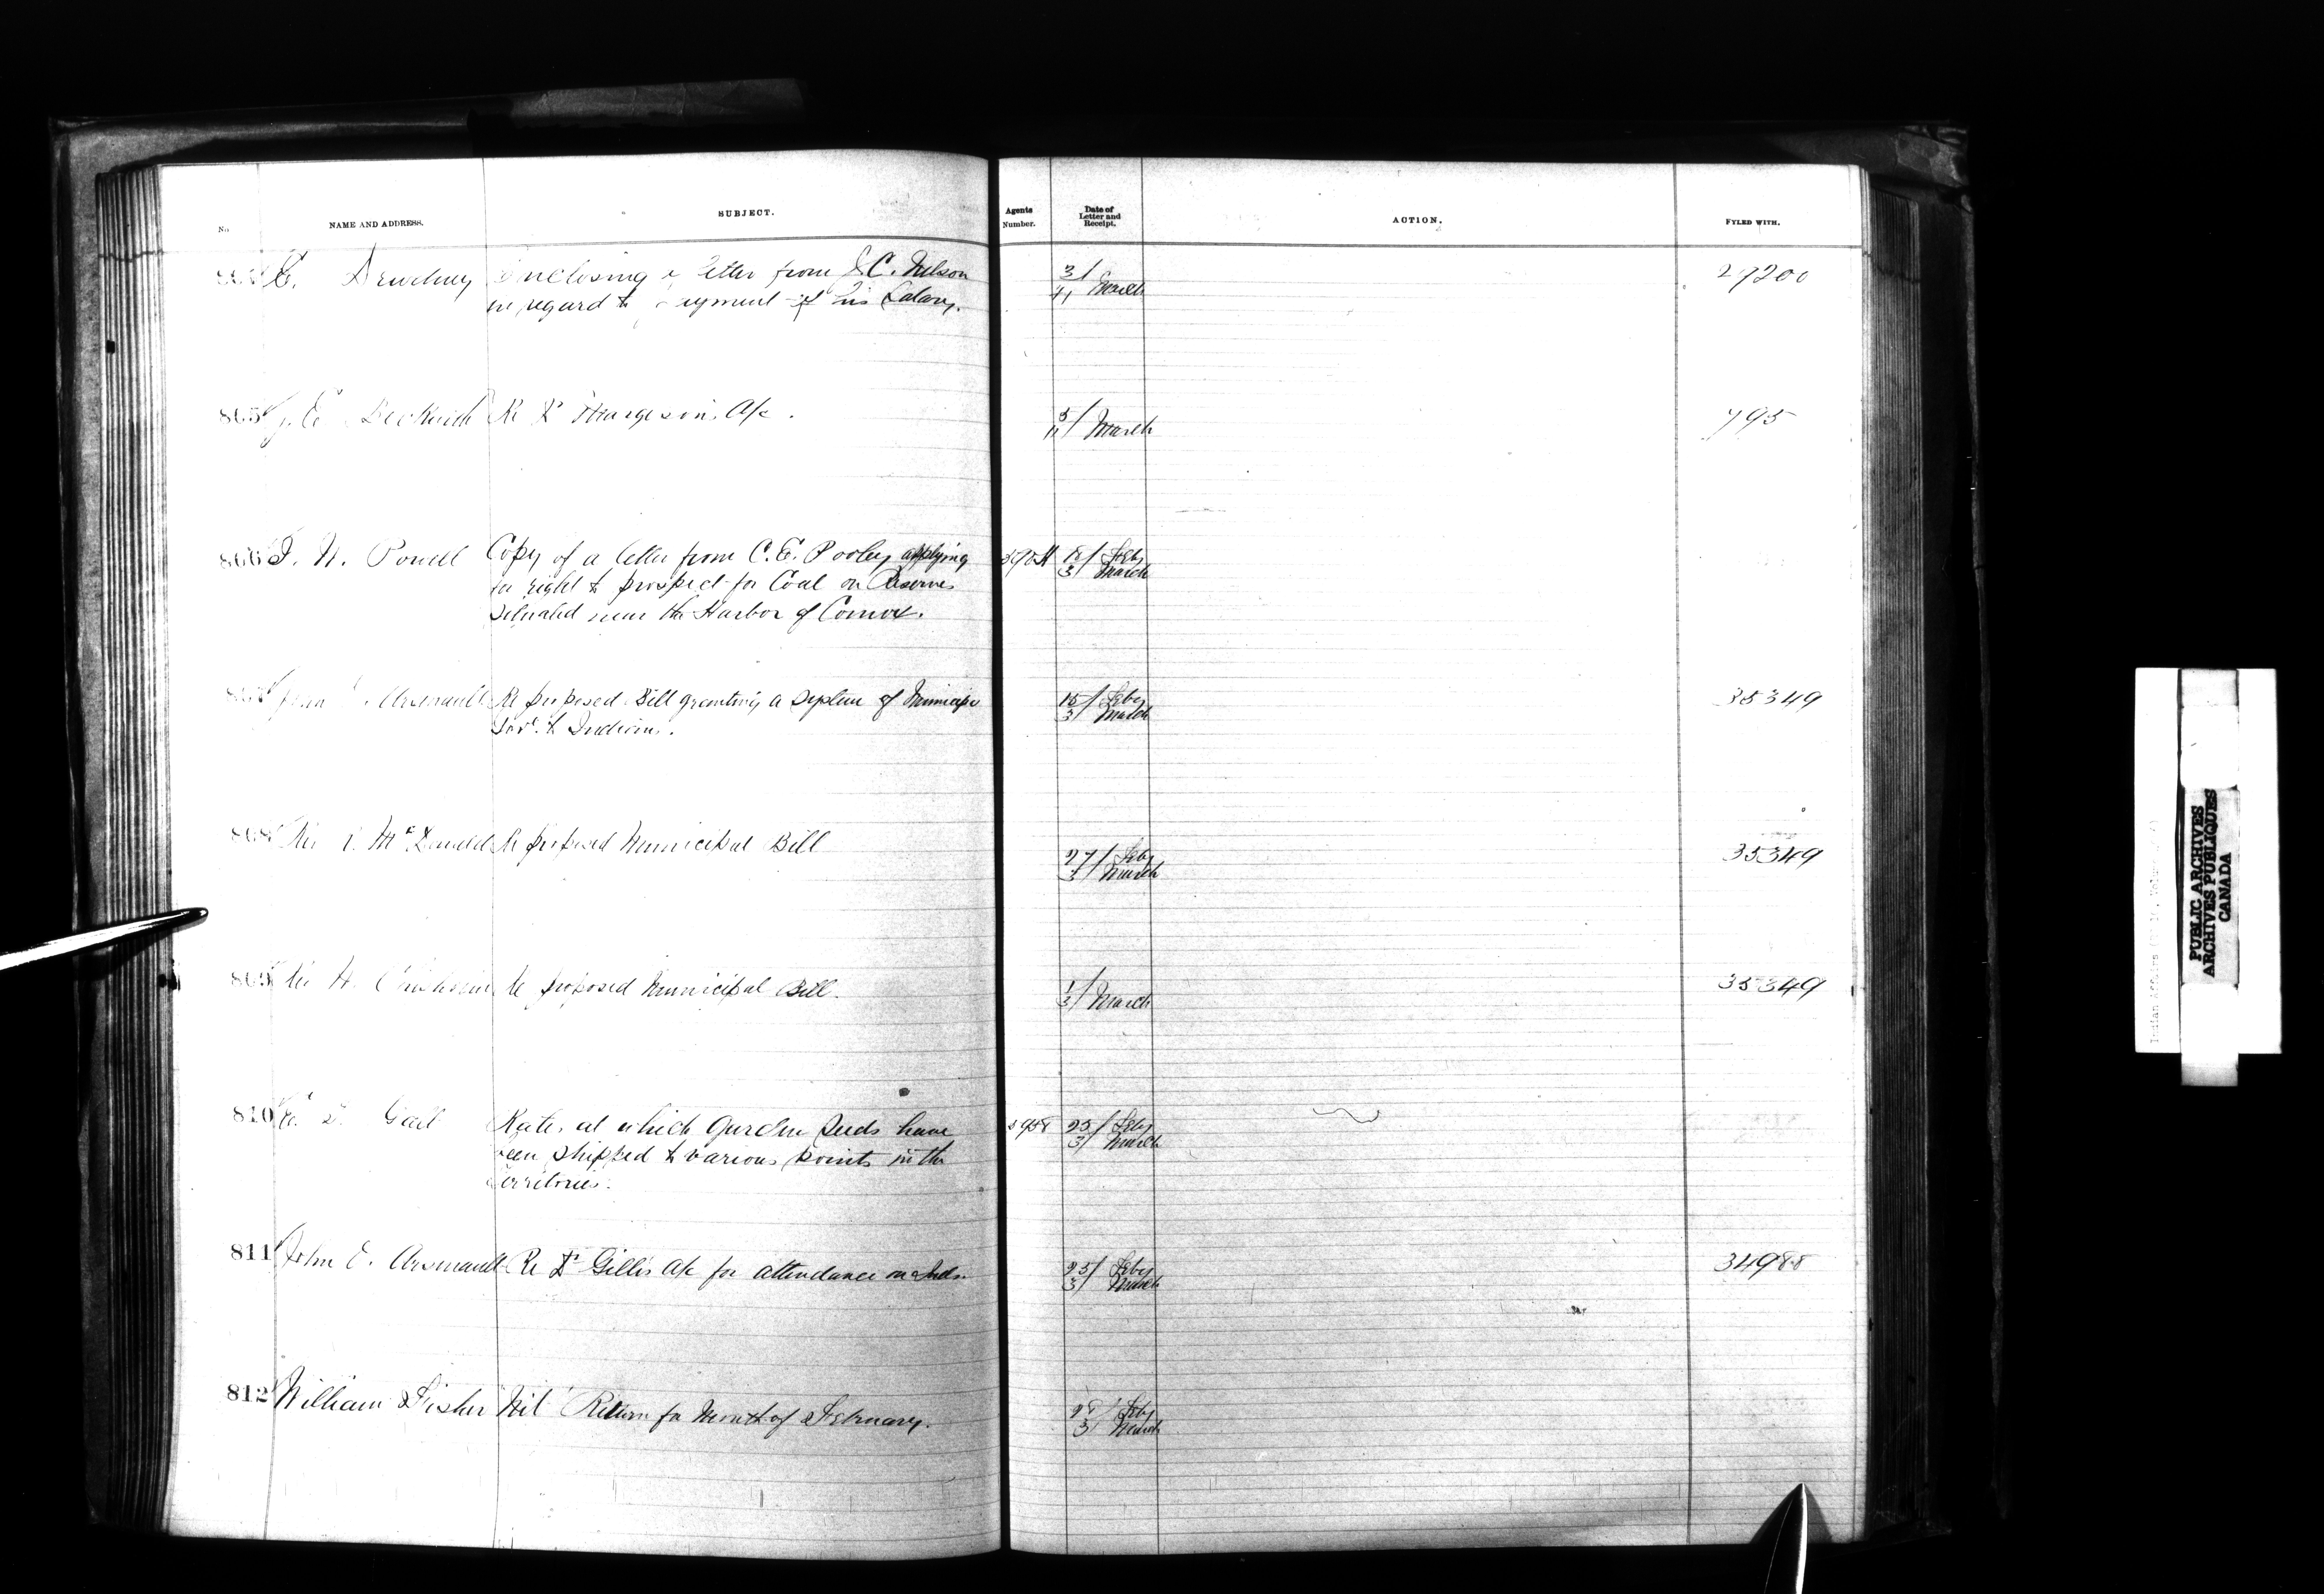 No.
NAME AND ADDRESS.
SUBJECT.
Agents
Number.
Date of
Letter and
Receipt.
ACTION.
FYLED WITH.
E. Dewdney
Enclosing a letter from J. C. Nelson
in regard to payment of his Salary.
3/
4/ March
27200
805
J. E. Beckwith
Re Dr A/c.
5/
March
795
806
I. W. Powell
Copy of a letter from C. E. Pooley applying
for right to prospect for Coal on Reserves
Situated near the Harbor of Comox.
18/ Feby
3/ March
807
John Arsenault
Re proposed Bill granting a System of Municipl
Govt. to Indians.
15/ Feby
3/ March
35349
808
Rev R. McDonald
Re proposed Municipal Bill
27/ Feby
3/ March
35349
809
Rev
Re proposed Municipal Bill.
1/
3/ March
35349
810
E. D. Galt
Rates at which Garden Seeds have
been Shipped to various points in the
Territories.
25/ Feby
3/ March
811
John O. Arsenault
Re Dr Gillis A/c for attendance on Inds.
25/ Feby
3/ March
34988
812
William Fisher
Nil Return for Month of February.
28/ Feby
3/ March
PUBLIC ARCHIVES
ARCHIVES PUBLIQUES
CANADA